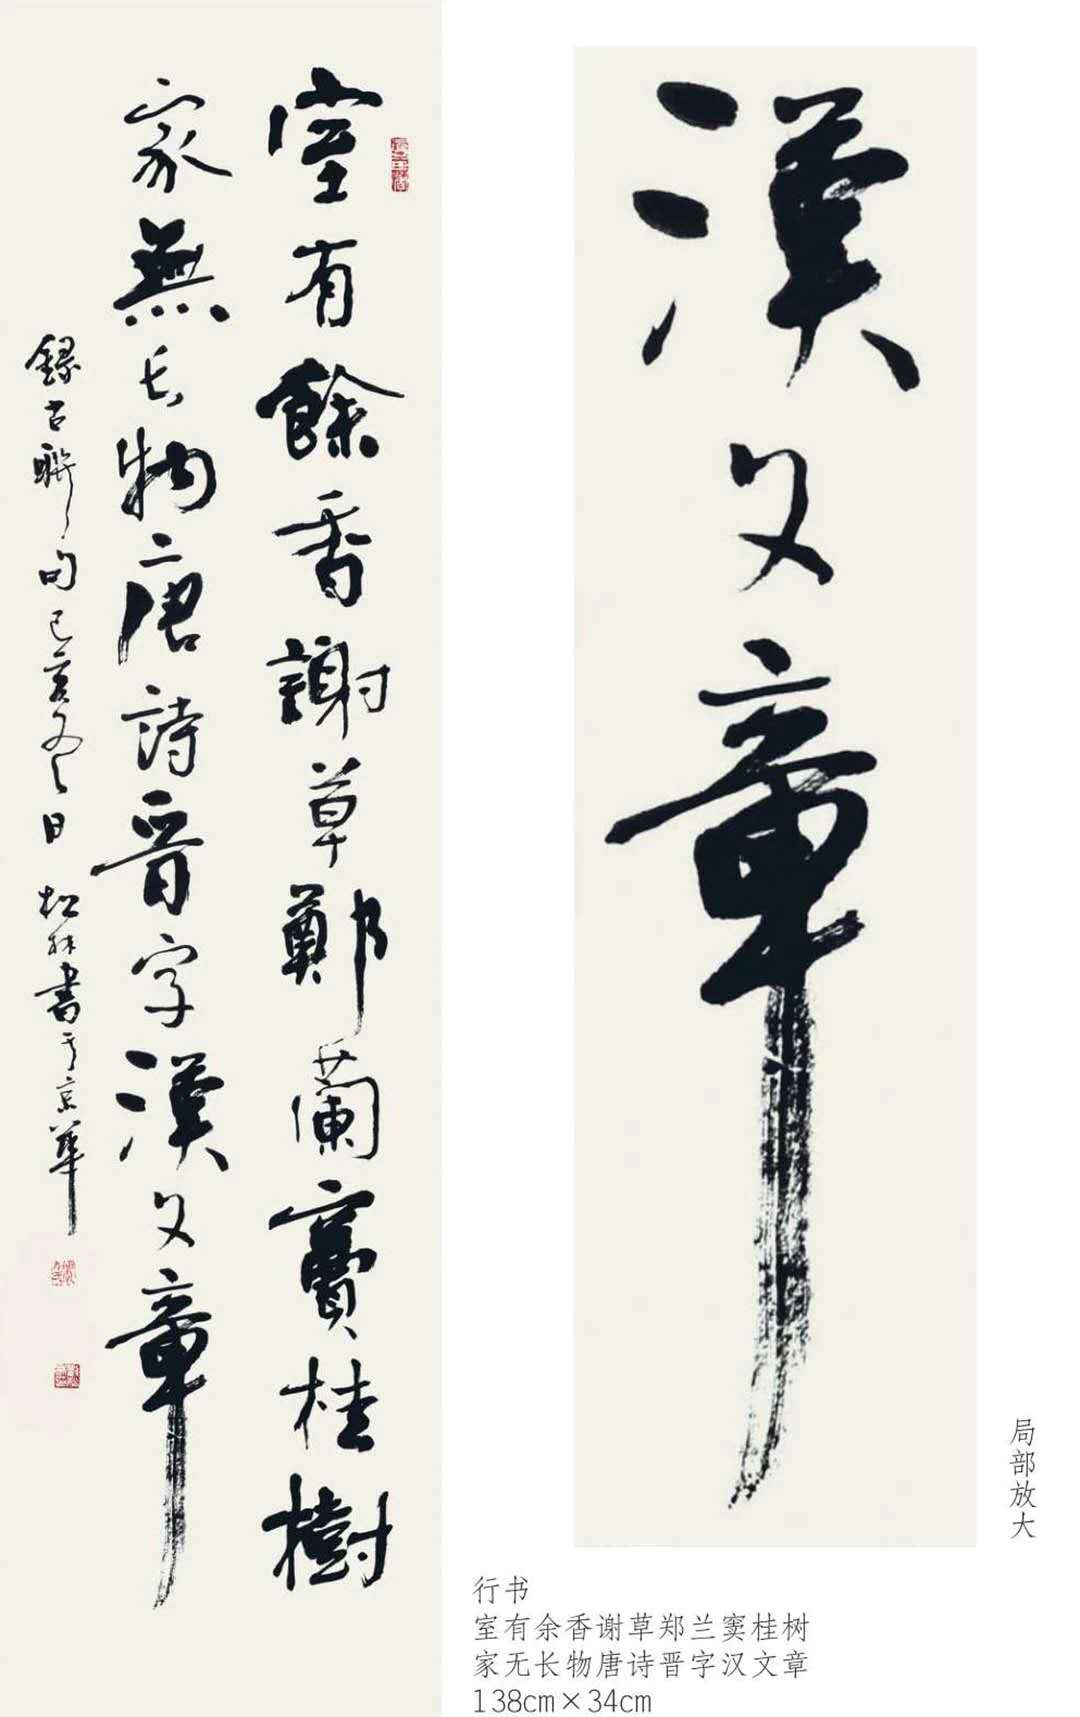 室有餘香謝草鄭蘭竇桂樹
家無長物唐詩晋字漢文章
錄古聯句己亥冬日松林書于京華
漢文章
局部放大
行书
室有余香谢草郑兰窦桂树
家无长物唐诗晋字汉文章
138cm×34cm